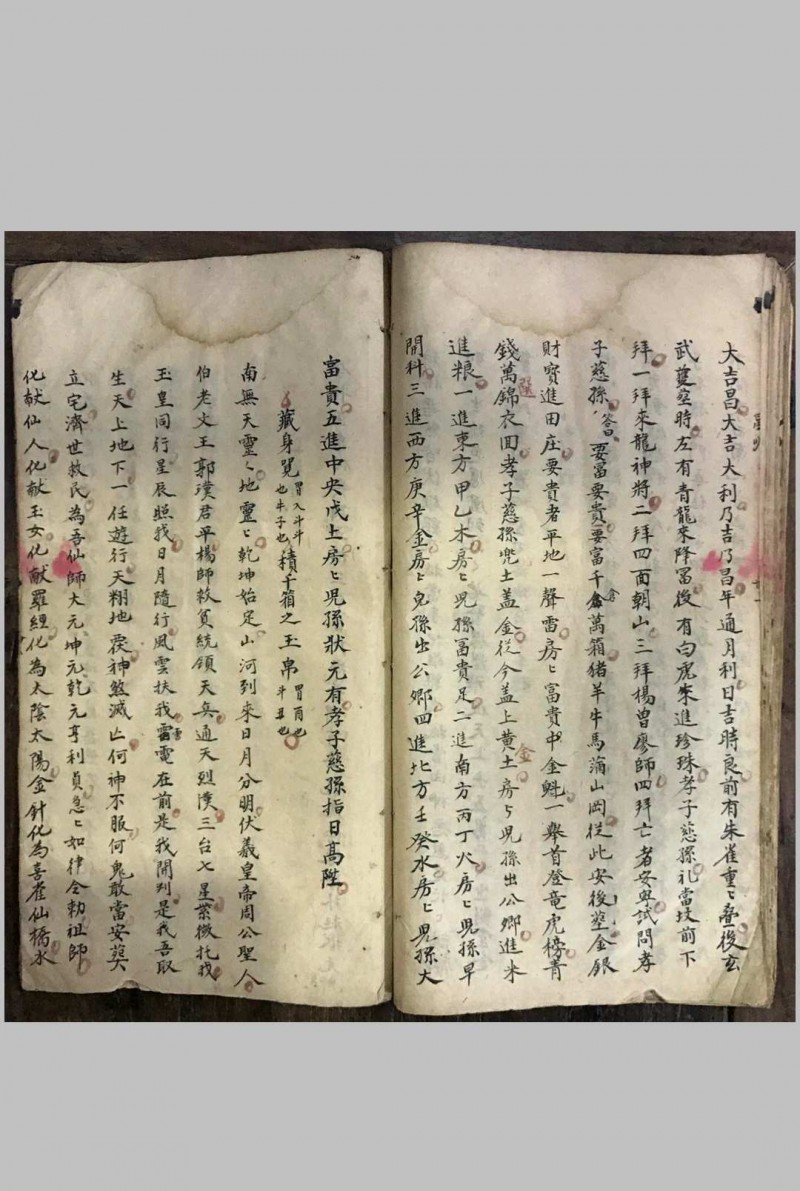 大吉昌大吉大利乃吉乃昌年通月利日吉時良前有朱雀重〻疊後玄
武蔓蔓時左有青龍來降冨後有白虎朱進珍珠孝子慈孫礼當坟前下
拜一拜來龍神將二拜四面朝山三拜楊曾廖師四拜亡者安與試問孝
子慈孫答曰要富要貴要富千倉萬箱猪羊牛馬滿山岡從此安後塟金銀
財寳進田庄要貴者平地一聲雷房〻富貴中金魁一舉首登竜虎榜青
錢萬錦衣囬孝子慈孫兜土盖金從今盖上黄土金房〻児孫出公卿進米
進粮一進東方甲乙木房〻児孫冨貴足二進南方丙丁火房〻児孫早
開科三進西方庚辛金房〻児孫出公卿四進北方壬癸水房〻児孫大
富貴五進中央戊土房〻児孫狀元有孝子慈孫指日髙陞
藏身覓
積千箱之玉帛
南無天靈〻地靈〻乾坤始足山河到來日月分明伏羲皇帝周公聖人
伯老文王郭漢君平楊師救貧統領天兵通天烈漢三台七星紫微托我
玉皇同行星辰照我日月隨行風雲扶我雷電在前是我開刿是我吾取
生天上地下一任遊行天翔地戾神煞滅亾何神不服何鬼敢當安塟
立宅濟世救民為吾仙師大元坤元乾元亨利貞急〻如律令勅祖師
化献仙人化献玉女化献羅經化為太陰太陽金針化為喜雀仙橋水